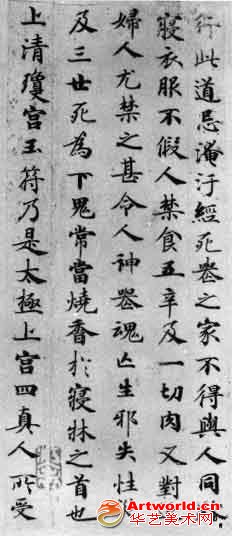 行此道忌淹汙經死喪之家不得與人同
寢衣服不假人禁食五辛及一切肉又對
婦人尤禁之甚令人神喪魂亡生邪失性
及三世死為下鬼常當燒香於寢牀之首也
上清瓊宮玉符乃是太極上宮四真人所受
Artworld.cn
华艺美术网